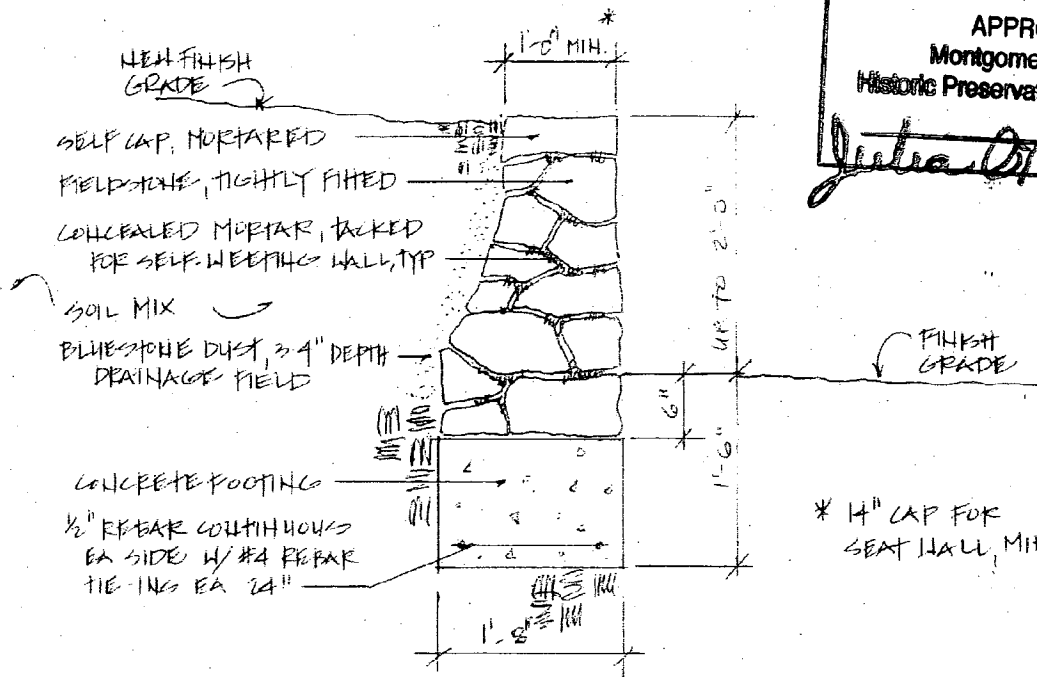 APPRO
Montgome
Historic Preserva
Julia
1'-0" MIN.
*
NEW FINISH
GRADE
SELF CAP, MORTARED
FIELDSTONE, TIGHTLY FITTED
CONCEALED MORTAR, TACKED
FOR SELF-WEEPING WALL, TYP
SOIL MIX
BLUESTONE DUST, 3-4" DEPTH
DRAINAGE FIELD
UP TO 2'-0"
FINISH
GRADE
6"
1'-6"
CONCRETE FOOTING
1/2" REBAR CONTINUOUS
EA SIDE W/ #4 REBAR
TIE-INS EA 24"
* 14" CAP FOR
SEAT WALL, MIN
1'-8"